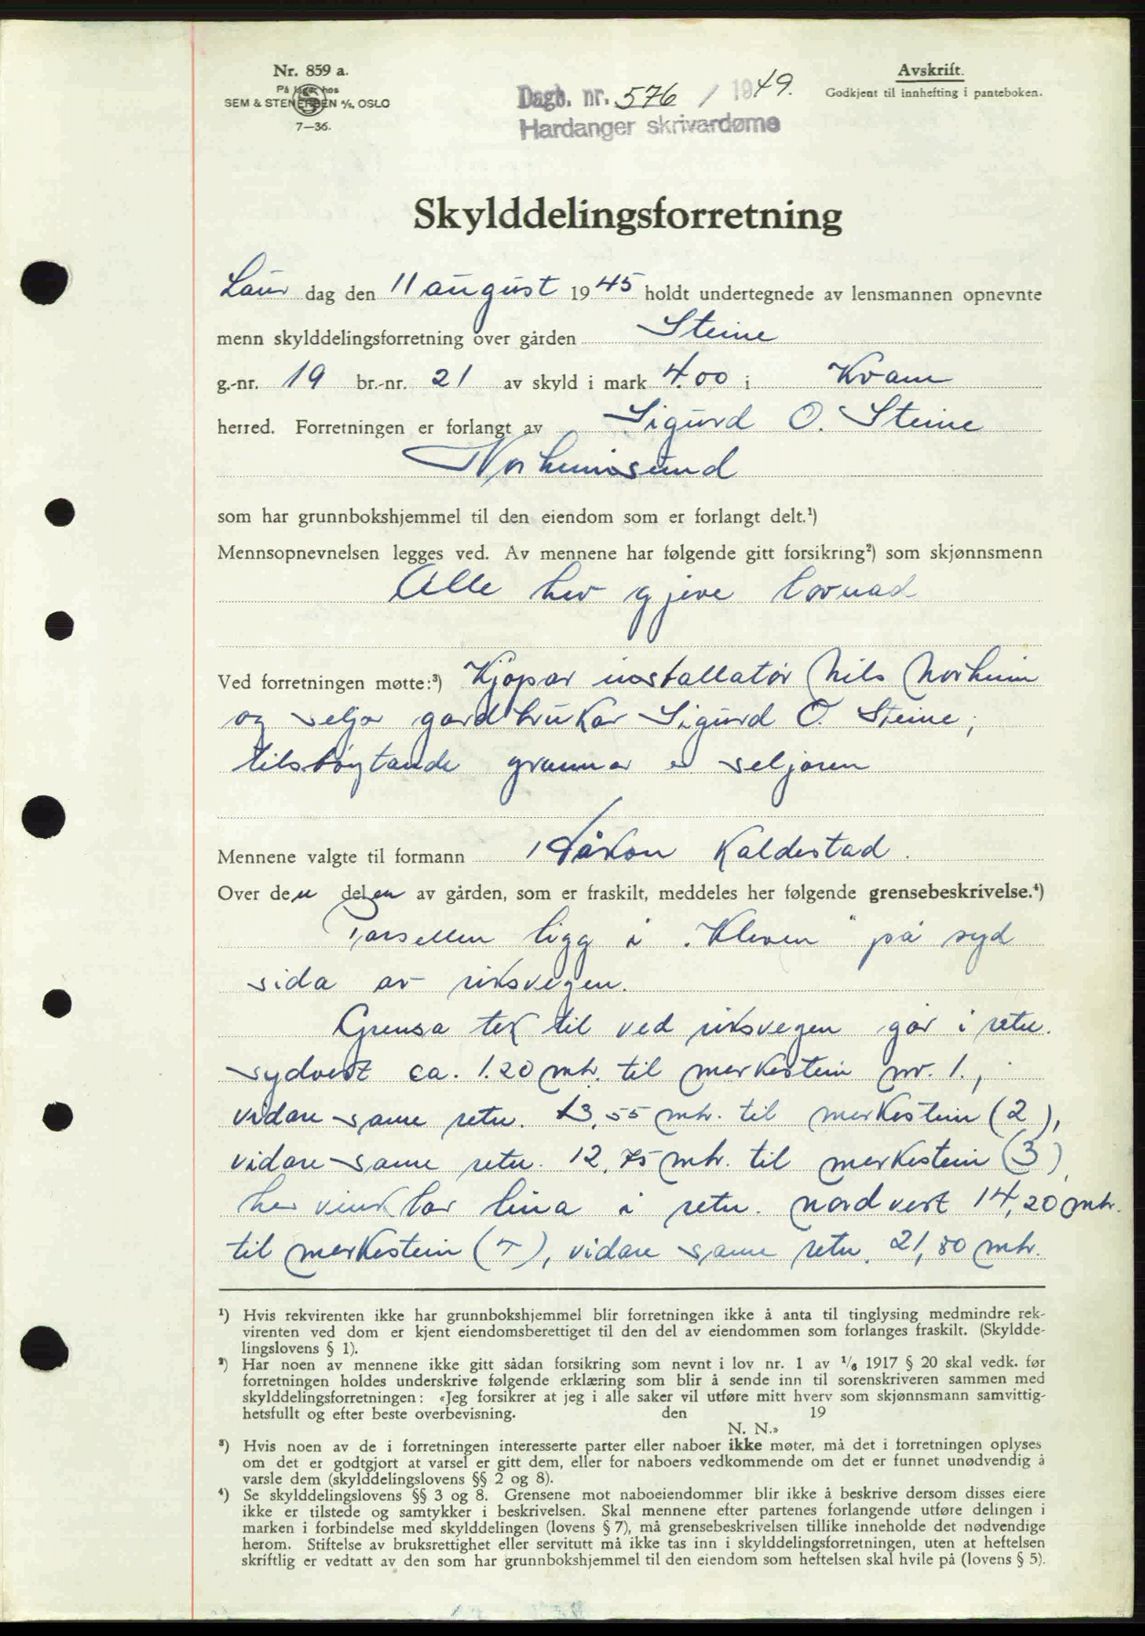 Nr. 859 a.
På lager hos
SEM & STENERSEN A/S, OSLO
7—36.
Dagb. nr. 576 / 1949.
Hardanger skrivardøme
Avskrift.
Godkjent til innhefting i panteboken.
Skylddelingsforretning
Laur dag den 11 august 1945 holdt undertegnede av lensmannen opnevnte
menn skylddelingsforretning over gården Steine
g.-nr. 19 br.-nr. 21 av skyld i mark 4.00 i Kvam
herred. Forretningen er forlangt av Sigurd O. Steine
Norheimsund
som har grunnbokshjemmel til den eiendom som er forlangt delt.¹)
Mennsopnevnelsen legges ved. Av mennene har følgende gitt forsikring²) som skjønnsmenn
Alle hev gjeve lovnad
Ved forretningen møtte:³) Kjøpar installatør Nils Norheim
og seljar gardbrukar Sigurd O. Steine,
tilstøytande grannar er seljaren
Mennene valgte til formann Håkon Kaldestad.
Over den delen av gården, som er fraskilt, meddeles her følgende grensebeskrivelse.⁴)
Parsellen ligg i "Kleven" på syd
sida av riksvegen.
Grensa tek til ved riksvegen går i retn.
sydvest ca. 1.20 mtr. til merkestein nr. 1.,
vidare same retn. 13,55 mtr. til merkestein (2),
vidare same retn. 12,75 mtr. til merkestein (3)
her vinklar lina i retn. nordvest 14,20 mtr.
til merkestein (4), vidare same retn. 21,80 mtr.
¹) Hvis rekvirenten ikke har grunnbokshjemmel blir forretningen ikke å anta til tinglysing medmindre rek-
virenten ved dom er kjent eiendomsberettiget til den del av eiendommen som forlanges fraskilt. (Skyldde-
lingslovens § 1).
²) Har noen av mennene ikke gitt sådan forsikring som nevnt i lov nr. 1 av 1/6 1917 § 20 skal vedk. før
forretningen holdes underskrive følgende erklæring som blir å sende inn til sorenskriveren sammen med
skylddelingsforretningen: «Jeg forsikrer at jeg i alle saker vil utføre mitt hverv som skjønnsmann samvittig-
hetsfullt og efter beste overbevisning. den 19
N. N.»
³) Hvis noen av de i forretningen interesserte parter eller naboer ikke møter, må det i forretningen oplyses
om det er godtgjort at varsel er gitt dem, eller for naboers vedkommende om det er funnet unødvendig å
varsle dem (skylddelingslovens §§ 2 og 8).
⁴) Se skylddelingslovens §§ 3 og 8. Grensene mot naboeiendommer blir ikke å beskrive dersom disses eiere
ikke er tilstede og samtykker i beskrivelsen. Skal mennene efter partenes forlangende utføre delingen i
marken i forbindelse med skylddelingen (lovens § 7), må grensebeskrivelsen tillike inneholde det nødvendige
herom. Stiftelse av bruksrettighet eller servitutt må ikke tas inn i skylddelingsforretningen, uten at heftelsen
skriftlig er vedtatt av den som har grunnbokshjemmel til den eiendom som heftelsen skal hvile på (lovens § 5).